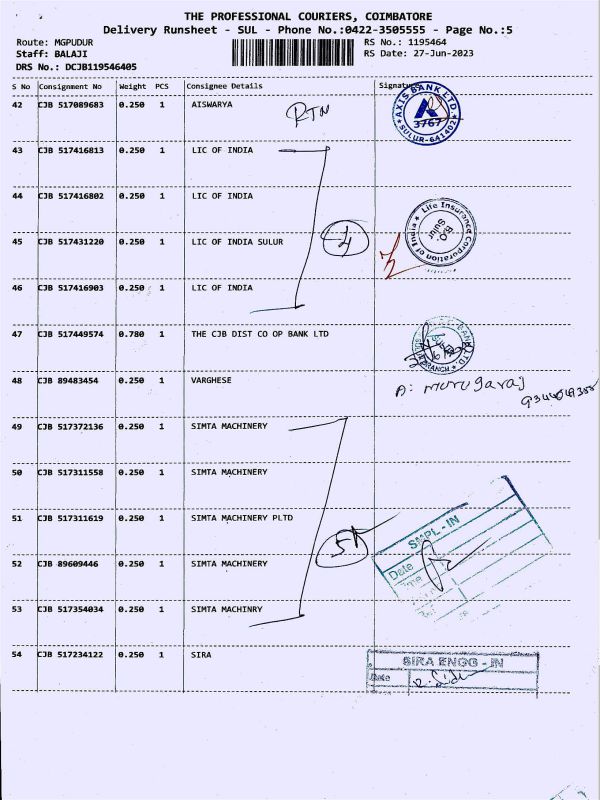 THE PROFESSIONAL COURIERS, COIMBATORE
Delivery Runsheet - SUL - Phone No.:0422-3505555 - Page No.:5
Route: MGPUDUR RS No.: 1195464
Staff: BALAJI RS Date: 27-Jun-2023
DRS No.: DCJB119546405
S No Consignment No Weight PCS Consignee Details Signature
42 CJB 517089683 0.250 1 AISWARYA RTN
AXIS BANK LTD.
3767
SULUR-641402
43 CJB 517416813 0.250 1 LIC OF INDIA
44 CJB 517416802 0.250 1 LIC OF INDIA
Life Insurance Corporation of India
B.O.
Sulur
45 CJB 517431220 0.250 1 LIC OF INDIA SULUR 4
46 CJB 517416903 0.250 1 LIC OF INDIA
47 CJB 517449574 0.780 1 THE CJB DIST CO OP BANK LTD
BRANCH
48 CJB 89483454 0.250 1 VARGHESE
A: murugaraj
49 CJB 517372136 0.250 1 SIMTA MACHINERY
50 CJB 517311558 0.250 1 SIMTA MACHINERY
51 CJB 517311619 0.250 1 SIMTA MACHINERY PLTD
SMPL-IN
Date
Time
52 CJB 89609446 0.250 1 SIMTA MACHINERY
53 CJB 517354034 0.250 1 SIMTA MACHINRY
54 CJB 517234122 0.250 1 SIRA
SIRA ENGG - IN
Date